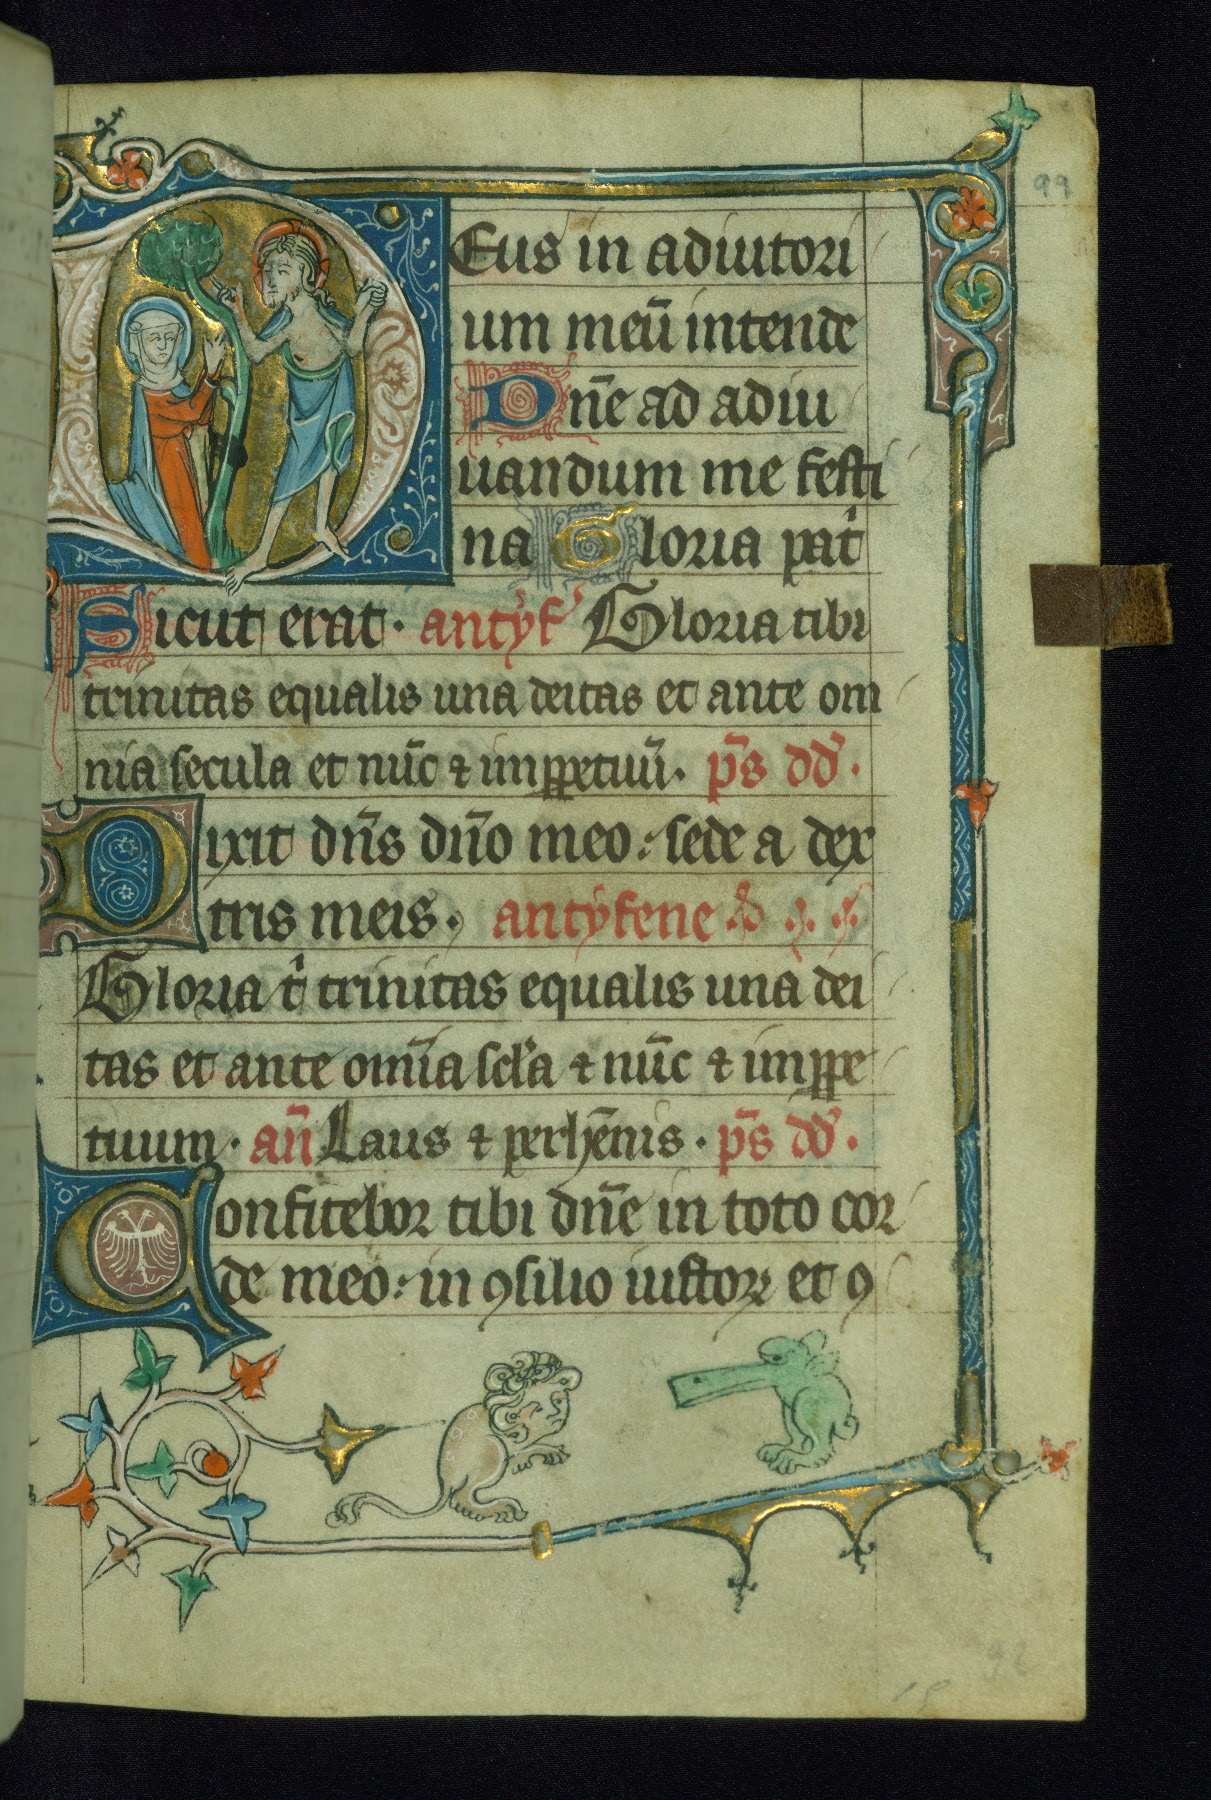 99
Deus in adiutori
um meū intende
Dn̄e ad adiu
uandum me festi
na Gloria pat̄
Sicut erat. antyf̄ Gloria tibi
trinitas equalis una deitas et ante om
nia secula et nūc ⁊ imꝑpetuū. p̄s dd̄.
Dixit dn̄s dn̄o meo: sede a dex
tris meis. antyfene
Gloria t̄ trinitas equalis una dei
tas et ante omīa scl̄a ⁊ nūc ⁊ imꝑpe
tuum. an̄ Laus ⁊ perhēnis. p̄s dd̄.
Confitebor tibi dn̄e in toto cor
de meo: in ꝯsilio iustoꝝ et ꝯ
92